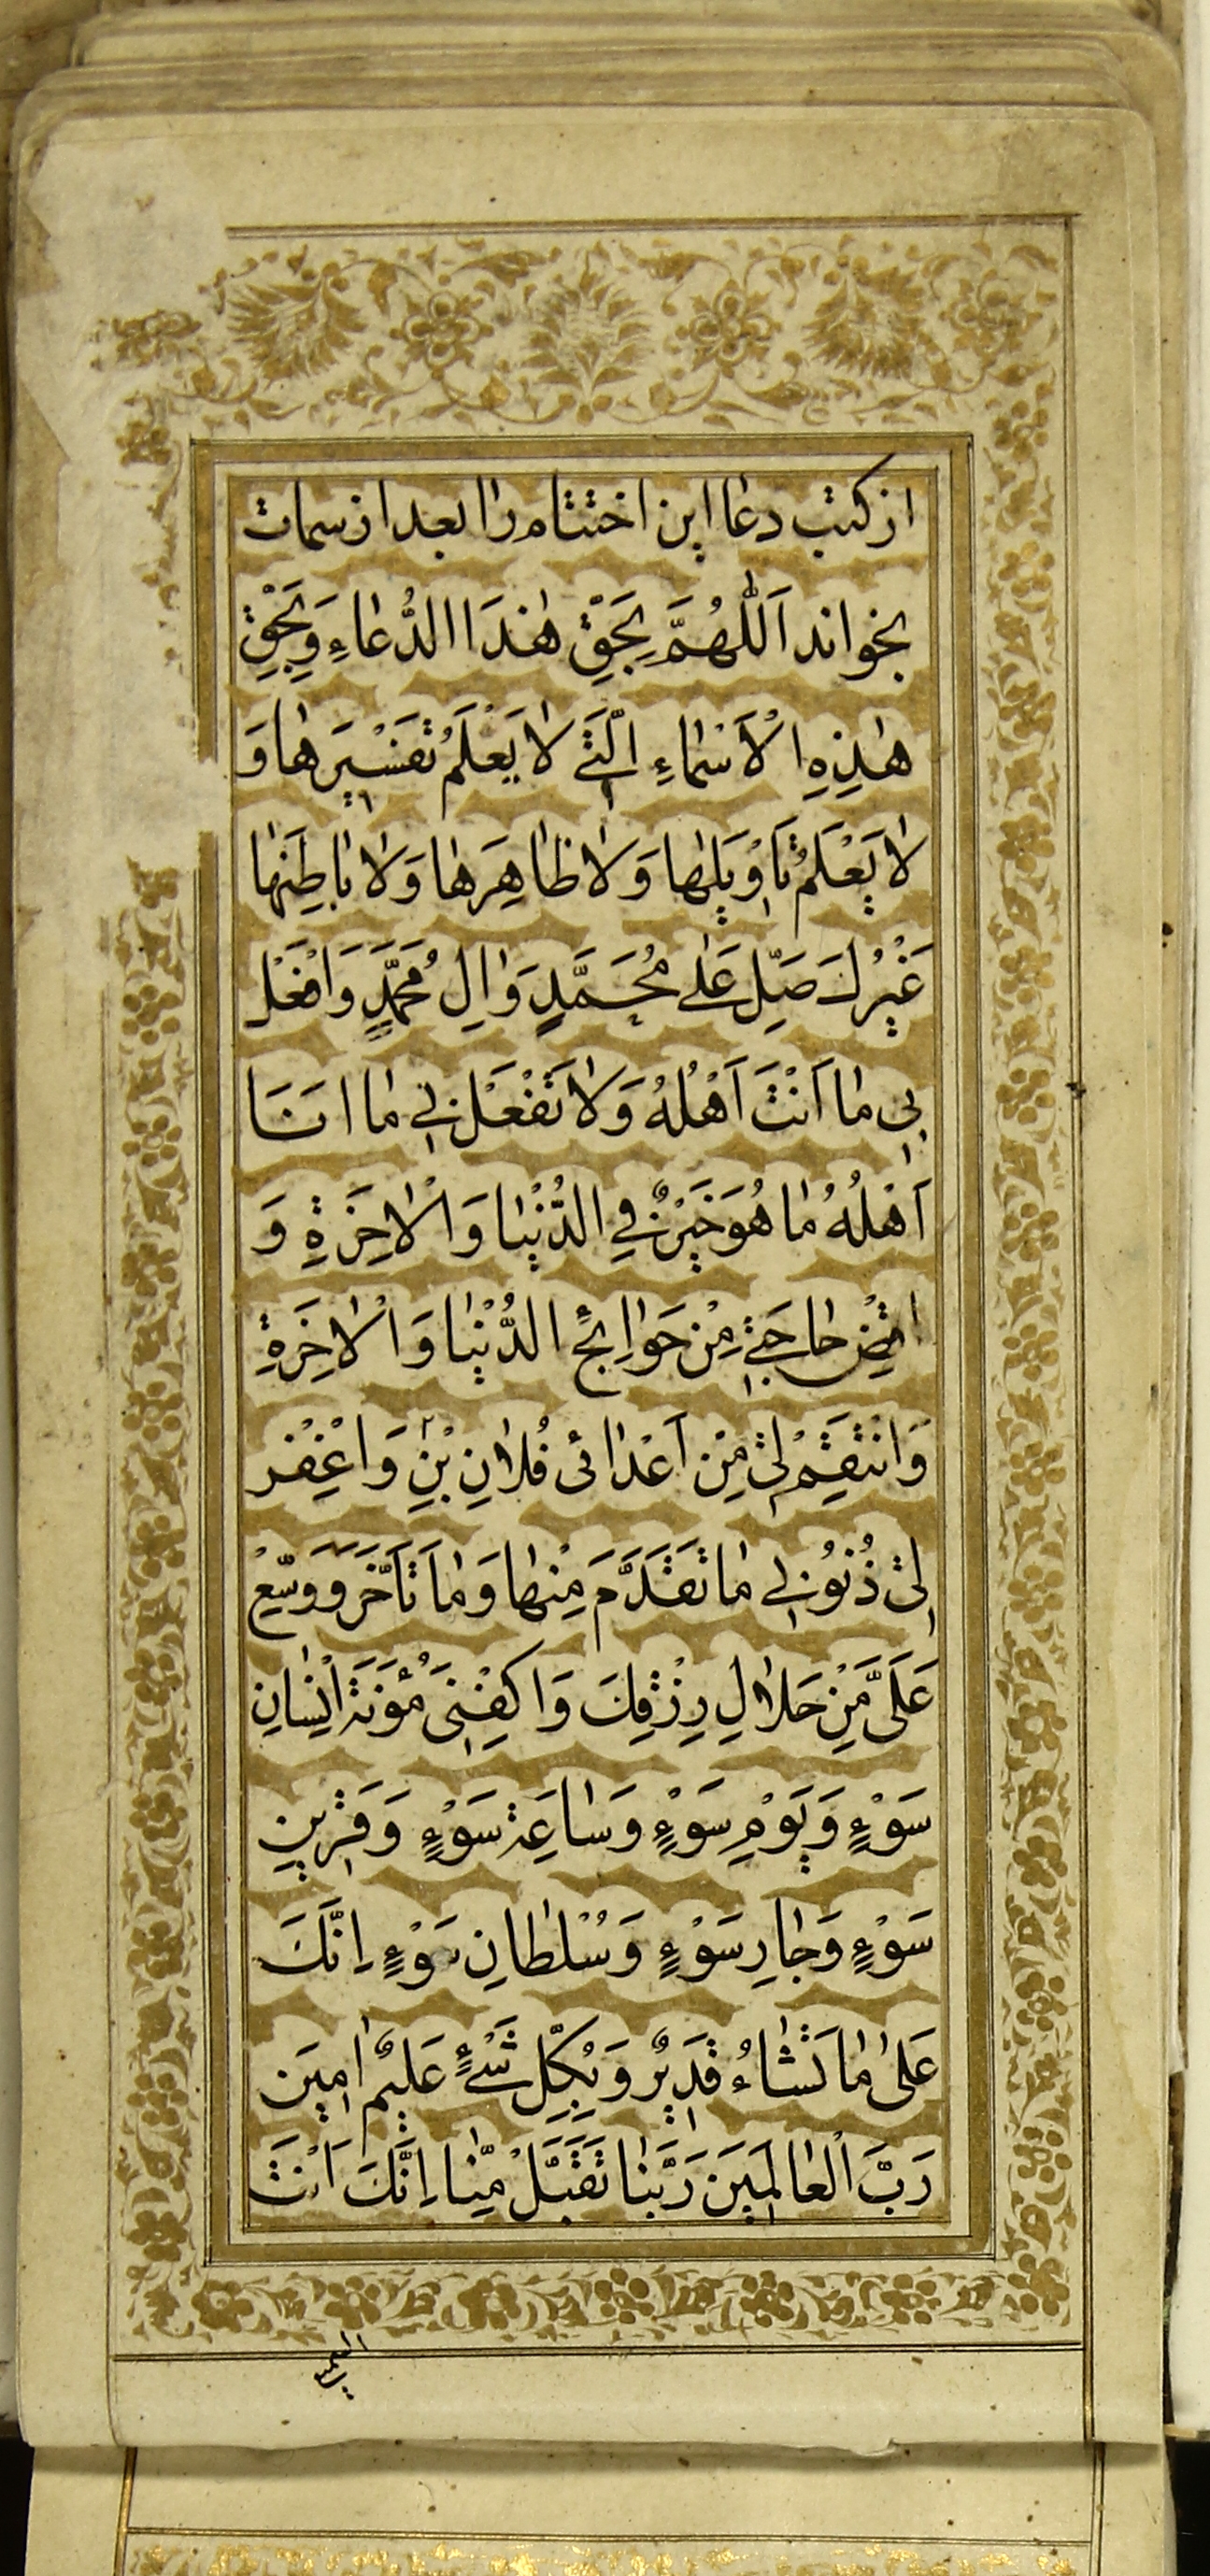 از کتب دعا این اختتام را بعد از سمات
بخواند اَللّٰهُمَّ بِحَقِّ هٰذَا الدُّعاءِ وَبِحَقِّ
هٰذِهِ الْاَسْماءِ الَّتي لا يَعْلَمُ تَفْسيرَها وَ
لا يَعْلَمُ تَاْويلَها وَلا ظاهِرَها وَلا باطِنَها
غَيْرُكَ صَلِّ عَلى مُحَمَّدٍ وَالِ مُحَمَّدٍ وَافْعَلْ
بي ما اَنْتَ اَهْلُهُ وَلا تَفْعَلْ بي ما اَنَا
اَهْلُهُ ما هُوَ خَيْرٌ فِي الدُّنْيا وَالْاخِرَةِ وَ
اقْضِ حاجَتي مِنْ حَوائِجِ الدُّنْيا وَالْاخِرَةِ
وَانْتَقِمْ لي مِنْ اَعْدائی فُلانِ بْنِ وَاغْفِرْ
لي ذُنُوبي ما تَقَدَّمَ مِنْها وَما تَاَخَّرَ وَوَسِّعْ
عَلَىَّ مِنْ حَلالِ رِزْقِكَ وَاكْفِنى مَؤُنَةَ اِنْسانِ
سَوْءٍ وَيَوْمِ سَوْءٍ وَساعَةِ سَوْءٍ وَقَرينِ
سَوْءٍ وَجارِ سَوْءٍ وَسُلْطانِ سَوْءٍ اِنَّكَ
عَلى ما تَشاءُ قَديرٌ وَبِكُلِّ شَيْءٍ عَليمٌ امينَ
رَبَّ الْعالَمينَ رَبَّنا تَقَبَّلْ مِنّا اِنَّكَ اَنْتَ
السميع